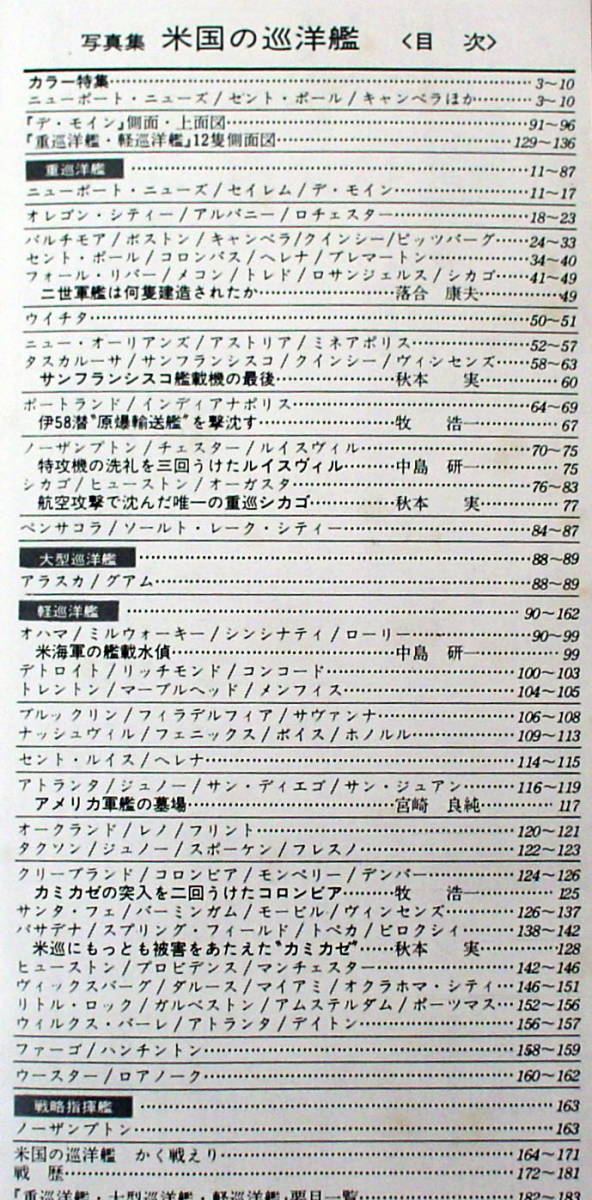 写真集 米国の巡洋艦 〈目 次〉
カラー特集……3〜10
ニューポート・ニューズ/セント・ポール/キャンベラほか……3〜10
『デ・モイン』側面・上面図……91〜96
『重巡洋艦・軽巡洋艦』12隻側面図……129〜136
重巡洋艦……11〜87
ニューポート・ニューズ/セイレム/デ・モイン……11〜17
オレゴン・シティー/アルバニー/ロチェスター……18〜23
バルチモア/ボストン/キャンベラ/クインシー/ピッツバーグ……24〜33
セント・ポール/コロンバス/ヘレナ/ブレマートン……34〜40
フォール・リバー/メコン/トレド/ロサンジェルス/シカゴ……41〜49
二世軍艦は何隻建造されたか……落合 康夫……49
ウイチタ……50〜51
ニュー・オーリアンズ/アストリア/ミネアポリス……52〜57
タスカルーサ/サンフランシスコ/クインシー/ヴィンセンズ……58〜63
サンフランシスコ艦載機の最後……秋本 実……60
ポートランド/インディアナポリス……64〜69
伊58潜〝原爆輸送艦〟を撃沈す……牧 浩一……67
ノーザンプトン/チェスター/ルイスヴィル……70〜75
特攻機の洗礼を三回うけたルイスヴィル……中島 研一……75
シカゴ/ヒューストン/オーガスタ……76〜83
航空攻撃で沈んだ唯一の重巡シカゴ……秋本 実……77
ペンサコラ/ソールト・レーク・シティー……84〜87
大型巡洋艦……88〜89
アラスカ/グアム……88〜89
軽巡洋艦……90〜162
オハマ/ミルウォーキー/シンシナティ/ローリー……90〜99
米海軍の艦載水偵……中島 研一……99
デトロイト/リッチモンド/コンコード……100〜103
トレントン/マーブルヘッド/メンフィス……104〜105
ブルックリン/フィラデルフィア/サヴァンナ……106〜108
ナッシュヴィル/フェニックス/ボイス/ホノルル……109〜113
セント・ルイス/ヘレナ……114〜115
アトランタ/ジュノー/サン・ディエゴ/サン・ジュアン……116〜119
アメリカ軍艦の墓場……宮崎 良純……117
オークランド/レノ/フリント……120〜121
タクソン/ジュノー/スポーケン/フレスノ……122〜123
クリーブランド/コロンビア/モンペリー/デンバー……124〜126
カミカゼの突入を二回うけたコロンビア……牧 浩一……125
サンタ・フェ/バーミンガム/モービル/ヴィンセンズ……126〜137
パサデナ/スプリング・フィールド/トペカ/ビロクシィ……138〜142
米巡にもっとも被害をあたえた〝カミカゼ〟……秋本 実……128
ヒューストン/プロビデンス/マンチェスター……142〜146
ヴィックスバーグ/ダルース/マイアミ/オクラホマ・シティ……146〜151
リトル・ロック/ガルベストン/アムステルダム/ポーツマス……152〜156
ウィルクス・バーレ/アトランタ/デイトン……156〜157
ファーゴ/ハンチントン……158〜159
ウースター/ロアノーク……160〜162
戦略指揮艦……163
ノーザンプトン……163
米国の巡洋艦 かく戦えり……164〜171
戦 歴……172〜181
『重巡洋艦・大型巡洋艦・軽巡洋艦』要目一覧……182〜183